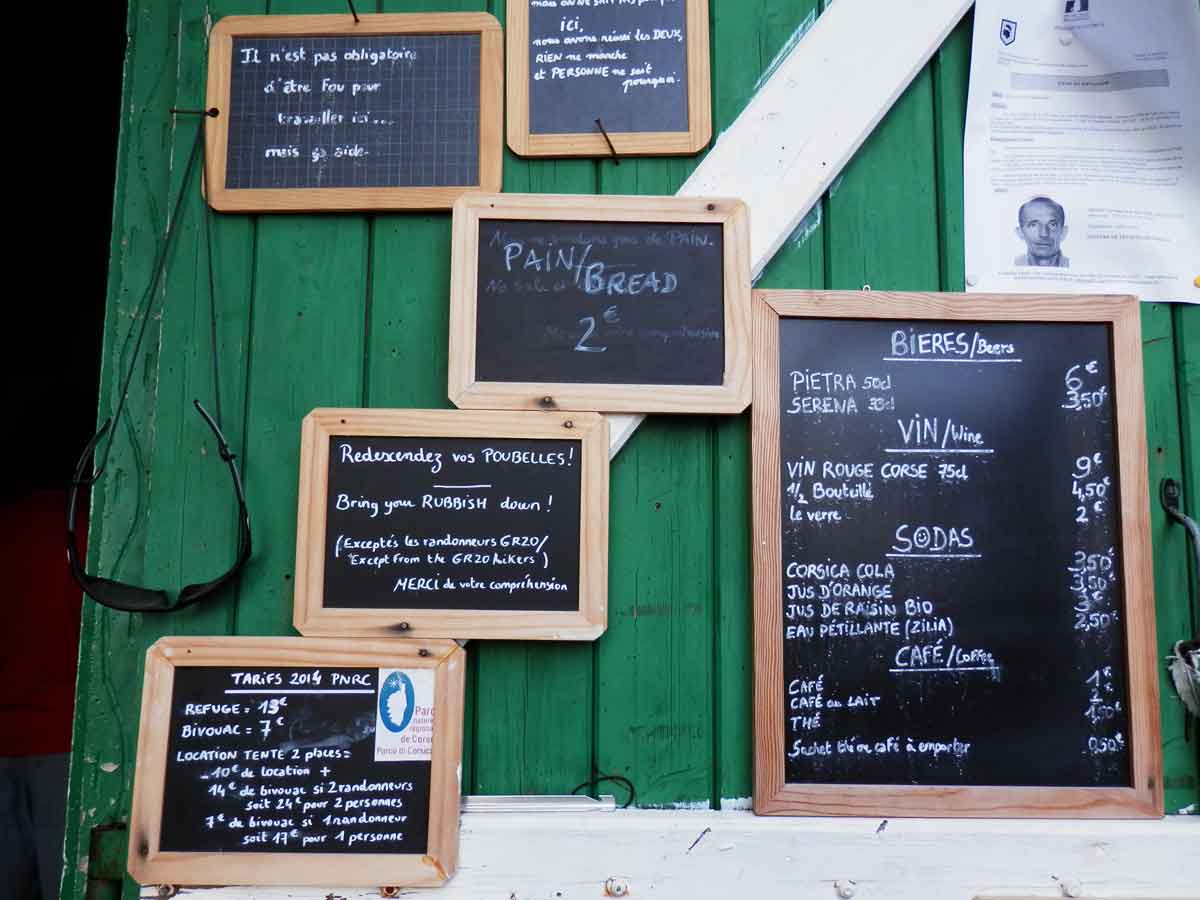 Il n'est pas obligatoire
d'être Fou pour
travailler ici...
mais ça aide.
ici,
nous avons réussi les DEUX,
RIEN ne marche
et PERSONNE ne sait
pourquoi.
PAIN.
PAIN/BREAD
2€
Redescendez vos POUBELLES!
Bring your RUBBISH down!
(Exceptés les randonneurs GR20/
Except from the GR20 hikers)
MERCI de votre compréhension
TARIFS 2014 PNRC
REFUGE = 13€
BIVOUAC = 7€
LOCATION TENTE 2 places =
10€ de location +
14€ de bivouac si 2 randonneurs
soit 24€ pour 2 personnes
7€ de bivouac si 1 randonneur
soit 17€ pour 1 personne
Parc
naturel
régional
de Corse
Parcu di Corsica
BIERES/Beers
PIETRA 50cl 6€
SERENA 33cl 3,50€
VIN/Wine
VIN ROUGE CORSE 75cl 9€
1/2 Bouteille 4,50€
le verre 2€
SODAS
CORSICA COLA 3,50€
JUS D'ORANGE 3,50€
JUS DE RAISIN BIO 3€
EAU PÉTILLANTE (ZILIA) 2,50€
CAFÉ/Coffee
CAFÉ 1€
CAFÉ au LAIT 2€
THÉ 1,50€
Sachet thé ou café à emporter 0,50€